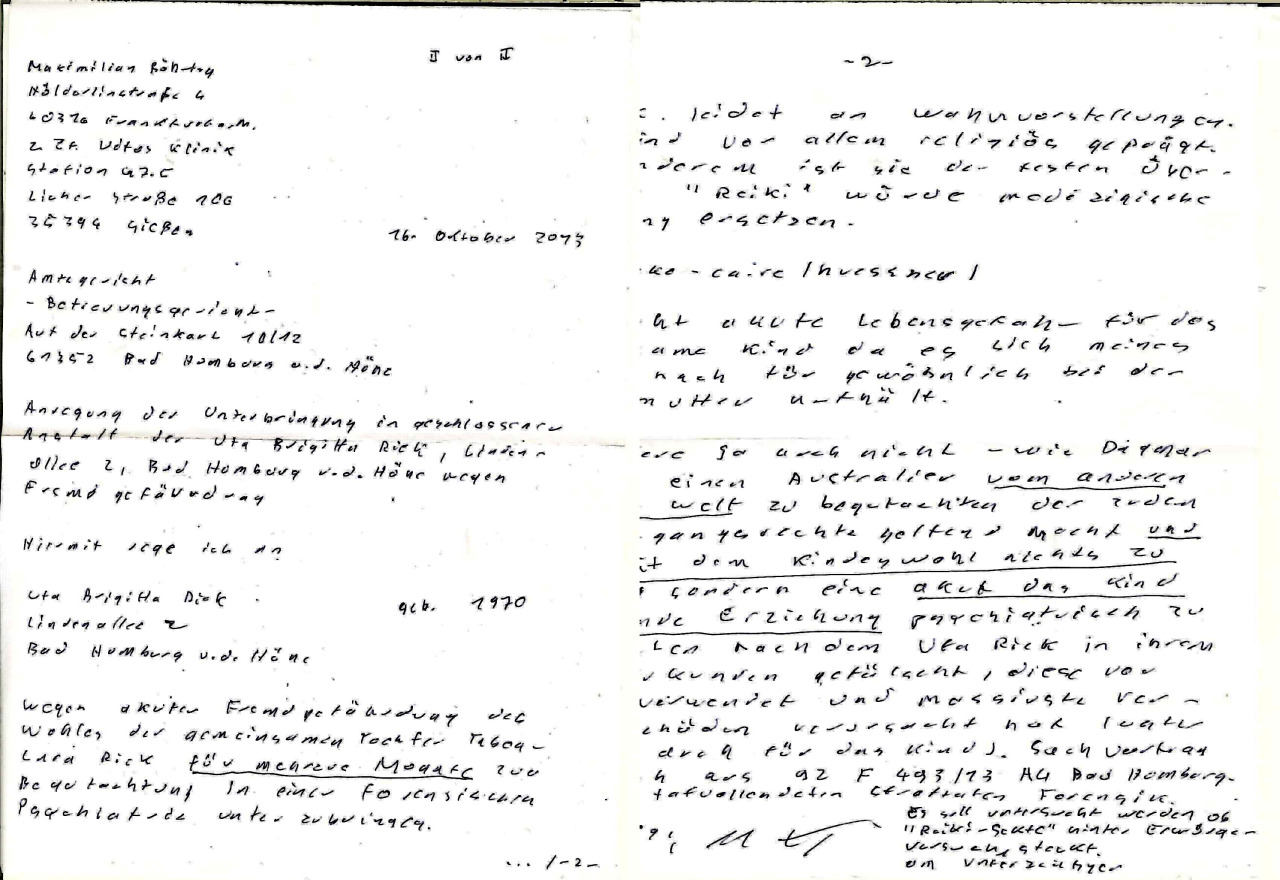 II von II
Maximilian
Hölderlinstraße 4
60316 Frankfurt a.M.
z. Zt. Vitos Klinik
Station
Licher Straße 106
35394 Gießen
16. Oktober 2013
Amtsgericht
- Betreuungsgericht -
Auf der Steinkaut 10/12
61352 Bad Homburg v.d. Höhe
Anregung der Unterbringung in geschlossener
Anstalt der Uta Brigitta Rick, Linden-
allee 2, Bad Homburg v.d. Höhe wegen
Fremdgefährdung
Hiermit rege ich an
Uta Brigitta Rick geb. 1970
Lindenallee 2
Bad Homburg v.d. Höhe
wegen akuter Fremdgefährdung des
Wohles der gemeinsamen Tochter Tabea-
Lara Rick für mehrere Monate zur
Begutachtung in einer forensischen
Psychiatrie unterzubringen.
... /-2-
-2-
leidet an Wahnvorstellungen.
ind vor allem religiös geprägt.
nderem ist sie der festen Über-
"Reiki" würde medizinische
ng ersetzen.
ht akute Lebensgefahr für das
ame Kind da es sich meines
nach für gewöhnlich bei der
mutter aufhält.
ere so auch nicht - wie Dagmar
einen Australier vom anderen
welt zu begutachten der
gangsrechte geltend macht und
it dem Kindeswohl nichts zu
sondern eine akut das Kind
nde Erziehung psychiatrisch zu
nachdem Uta Rick in ihrem
kunden gefälscht, diese vor
verwendet und massivste Ver-
chäden verursacht hat
für das Kind). Sachvortrag
h aus 92 F 493/13 AG Bad Homburg.
Straftaten Forensik.
Es soll untersucht werden ob
"Reiki-Sekte" hinter Erwürge-
versuch steckt.
am Unterzeichner